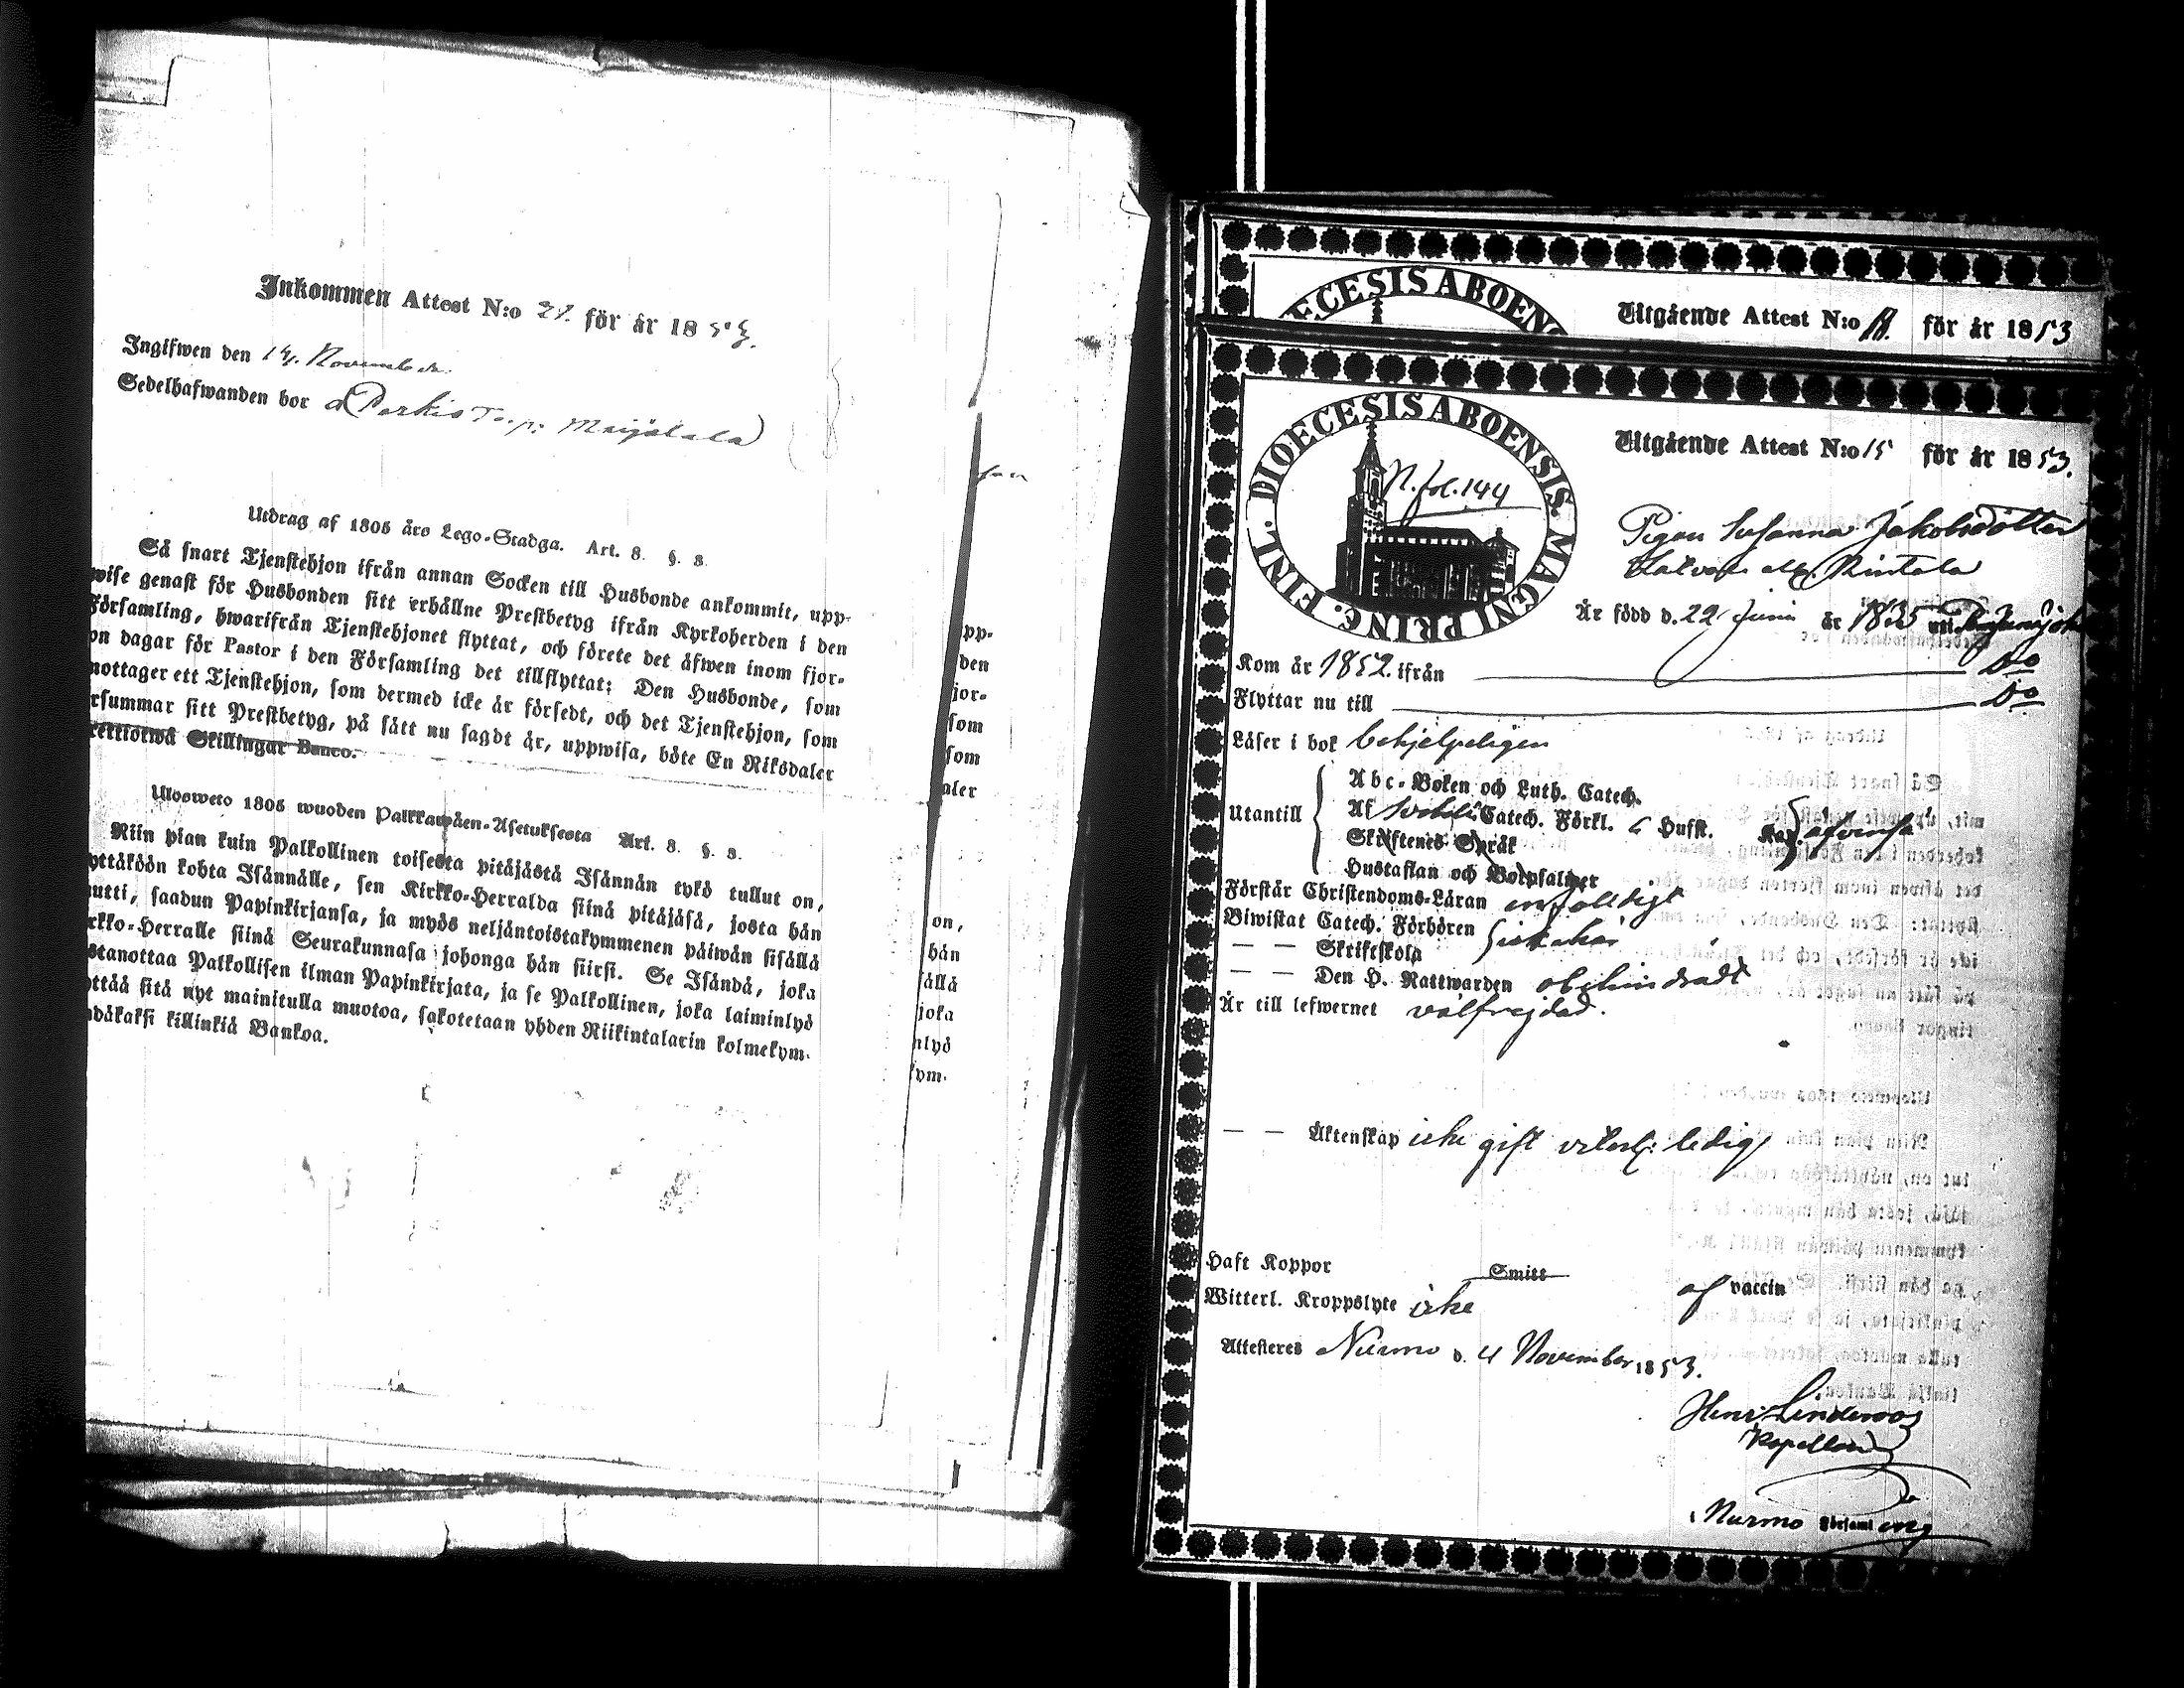 Inkommen Attest N:o 21. för år 1853.
Ingifwen den 14. November
Sedelhafwanden bor
Utdrag af 1805 års Lego-Stadga. Art. 8. §. 3.
Så snart Tjenstehjon ifrån annan Socken till Husbonde ankommit, upp-
wise genast för Husbonden sitt erhållne Prestbetyg ifrån Kyrkoherden i den
Församling, hwarifrån Tjenstehjonet flyttat, och förete det äfwen inom fjor-
on dagar för Pastor i den Församling det tillflyttat; Den Husbonde, som
mottager ett Tjenstehjon, som dermed icke är försedt, och det Tjenstehjon, som
rsummar sitt Prestbetyg, på sätt nu sagdt är, uppwisa, böte En Riksdaler
rettiotwå Skillingar Banco.
Ulosweto 1805 wuoden Palkkawäen-Asetuksesta Art. 8. §. 3.
Niin pian kuin Palkollinen toisesta pitäjästä Isännän tykö tullut on,
yttäköön kohta Isännälle, sen Kirkko-Herralda siinä pitäjäsä, josta hän
uutti, saadun Papinkirjansa, ja myös neljäntoistakymmenen päiwän sisällä
rkko-Herralle siinä Seurakunnasa johonga hän siirsi. Se Isändä, joka
stanottaa Palkollisen ilman Papinkirjata, ja se Palkollinen, joka laiminlyö
yttää sitä nyt mainitulla muotoa, sakotetaan yhden Riikintalarin kolmekym-
ndäkaksi killinkiä Bankoa.
pp-
den
jor-
som
som
aler
on,
hän
ällä
joka
nlyö
kym-
ECESIS ABOEN
Utgående Attest N:o för år 1853
DIOECESIS ABOENSIS. MAGNI PRINC. FINL.
N. fol. 144
Utgående Attest N:o 15 för år 1853.
Pigan Susanna Jakobsdotter
Rintala
Är född d. 22 Juni år 1835
Kom år 1852. ifrån Do
Flyttar nu till Do
Läser i bok behjelpeligen
Utantill
Abc-Boken och Luth. Catech.
Af Svebilii Catech. Förkl. Husst.
Skriftenes Språk
Hustaflan och Botpsalmer
Förstår Christendoms-Läran enfaldigt
Biwistat Catech. Förhören
— — Skriftskola
— — Den H. Nattwarden obehindradt
Är till lefwernet välfrejdad.
— — Äktenskap icke gift veterl: ledig
Haft Koppor Smitt af vaccin
Witterl. Kroppslyte icke
Attesteras Nurmo d. 4 November 1853.
Henr: Lindroos
Kapellan
Nurmo Församling